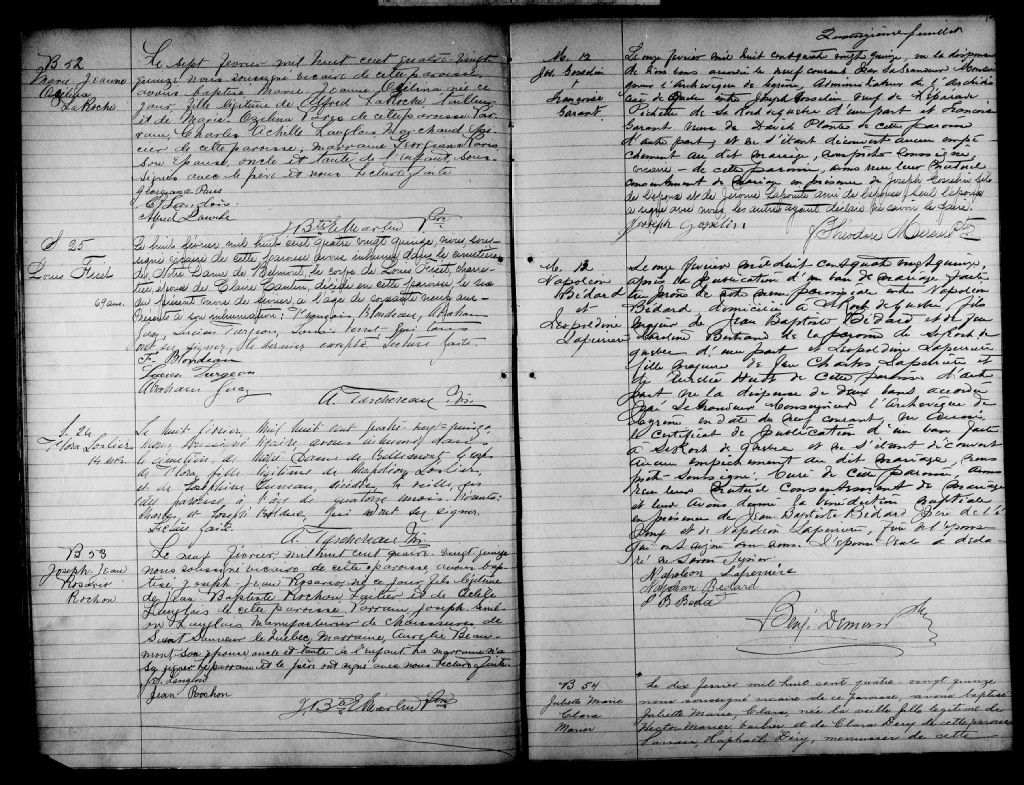 B 52
Marie Jeanne
Ozelina
LaRoche
Le sept février mil huit cent quatre vingt
quinze nous soussigné vicaire de cette paroisse,
avons baptisé Marie Jeanne Ozelina née ce
jour, fille légitime de Alfred LaRoche, tailleur
et de Marie Ozelina Paris de cette paroisse Par-
rain, Charles Achille Langlois Marchand
de cette paroisse; marraine Georgiana Paris
son épouse, oncle et tante de l'enfant sous-
signés avec le père et nous. Lecture faite
Georgiana Paris
C. A. Langlois
Alfred Laroche
J. Bte E Martin Ptre
S 25
Louis Feret
69 ans.
Le huit février mil huit cent quatre vingt quinze, nous, sous-
signé vicaire de cette paroisse avons inhumé dans le cimetière
de Notre Dame de Belmont, le corps de Louis Feret, charre-
tier époux de Claire Cantin, décédé en cette paroisse, le six
du présent mois de février, à l'âge de soixante neuf ans.
Présents à son inhumation: François Blondeau, Abraham
Guay, Lucien Turgeon, Louis
signer, le dernier excepté. Lecture faite.
F. Blondeau
Lucien Turgeon
Abraham Guay
A. Taschereau Ptre
S. 26
Flora Loslier
14 mois.
Le huit février mil huit cent quatre vingt-quinze,
nous soussigné vicaire, avons inhumé dans
le cimetière de Notre Dame de Bellemont le corps
de Flora fille légitime de Napoléon Loslier,
et de Joséphine décédée la veille, en
cette paroisse à l'âge de quatorze mois. Présents:
Charles et Joseph qui n'ont su signer.
Lecture faite.
A. Taschereau Ptre
B 53
Joseph Jean
Rosario
Rochon
Le neuf février mil huit cent quatre vingt quinze
nous soussigné vicaire de cette paroisse avons bap-
tisé Joseph Jean Rosario, né ce jour, fils légitime
de Jean Baptiste Rochon, et de Odile
Langlois de cette paroisse. Parrain, Joseph
Langlois manufacturier de chaussures de
Saint Sauveur de Québec, Marraine, Aurélie Beau-
mont son épouse oncle et tante de l'enfant. La marraine n'a
su signer le parrain et le père ont signé avec nous. Lecture faite.
Jos Langlois
Jean Rochon
J. Bte E. Martin Ptre
feuillet
M. 12
Jos. Gosselin
&
Françoise
Garant
Le onze février mil huit cent quatre vingt quinze, vu la dispense
de trois bans accordée le neuf courant par Sa Grandeur Monsei-
gneur l'Archevêque de Cyrène, Administrateur de l'archidio-
cèse de Québec entre Joseph Gosselin veuf de
de St Roch de Québec d'une part et Françoise
Garant veuve de David Plante de cette paroisse
d'autre part; et ne s'étant découvert aucun empê-
chement au dit mariage, nous prêtre soussigné,
vicaire de cette paroisse, avons reçu leur mutuel
consentement de mariage en présence de Joseph Gosselin fils
de l'époux et de Jérome Lapointe ami de l'épouse; seul l'époux
a signé avec nous les autres ayant déclaré ne savoir le faire.
Joseph Gosselin
J Théodore Mercier Ptre
M. 13
Napoléon
Bédard
et
Léopoldine
Laperrière
Le onze février mil huit cent quatre vingt quinze
après la publication d'un ban de mariage faite
au prône de notre messe paroissiale entre Napoléon
Bédard domicilié à St Roch de Québec fils
majeur de Jean Baptiste Bédard et de feu
Caroline Bertrand de la paroisse de St Roch de
Québec d'une part et Léopoldine Laperrière
fille majeure de feu Charles Laperrière et
de Huot de cette paroisse d'autre
part, vu la dispense de deux bans accordée
par Sa Grandeur Monseigneur l'Archevêque de
Cyrène en date du neuf courant; vu aussi
le certificat de publication d'un ban faite
à St Roch de Québec et ne s'étant découvert
aucun empêchement au dit mariage, nous
prêtre soussigné, Curé de cette paroisse avons
reçu leur mutuel consentement de mariage
et leur avons donné la bénédiction nuptiale
en présence de Jean Baptiste Bédard père de l'é-
poux et de Napoléon Laperrière, frère de l'épouse
qui ont signé avec nous l'épouse a décla-
ré ne savoir signer
Napoléon Laperrière
Napoléon Bédard
J B Bédard
Benj. Demers Ptre
B 54
Juliette Marie
Clara
Marier
Le dix février mil huit cent quatre vingt quinze
nous soussigné vicaire de cette paroisse avons baptisé
Juliette Marie, Clara, née la veille fille légitime de
Hector Marier, barbier et de Clara Dery de cette paroisse
Parrain, Raphaël Déry, menuisier de cette